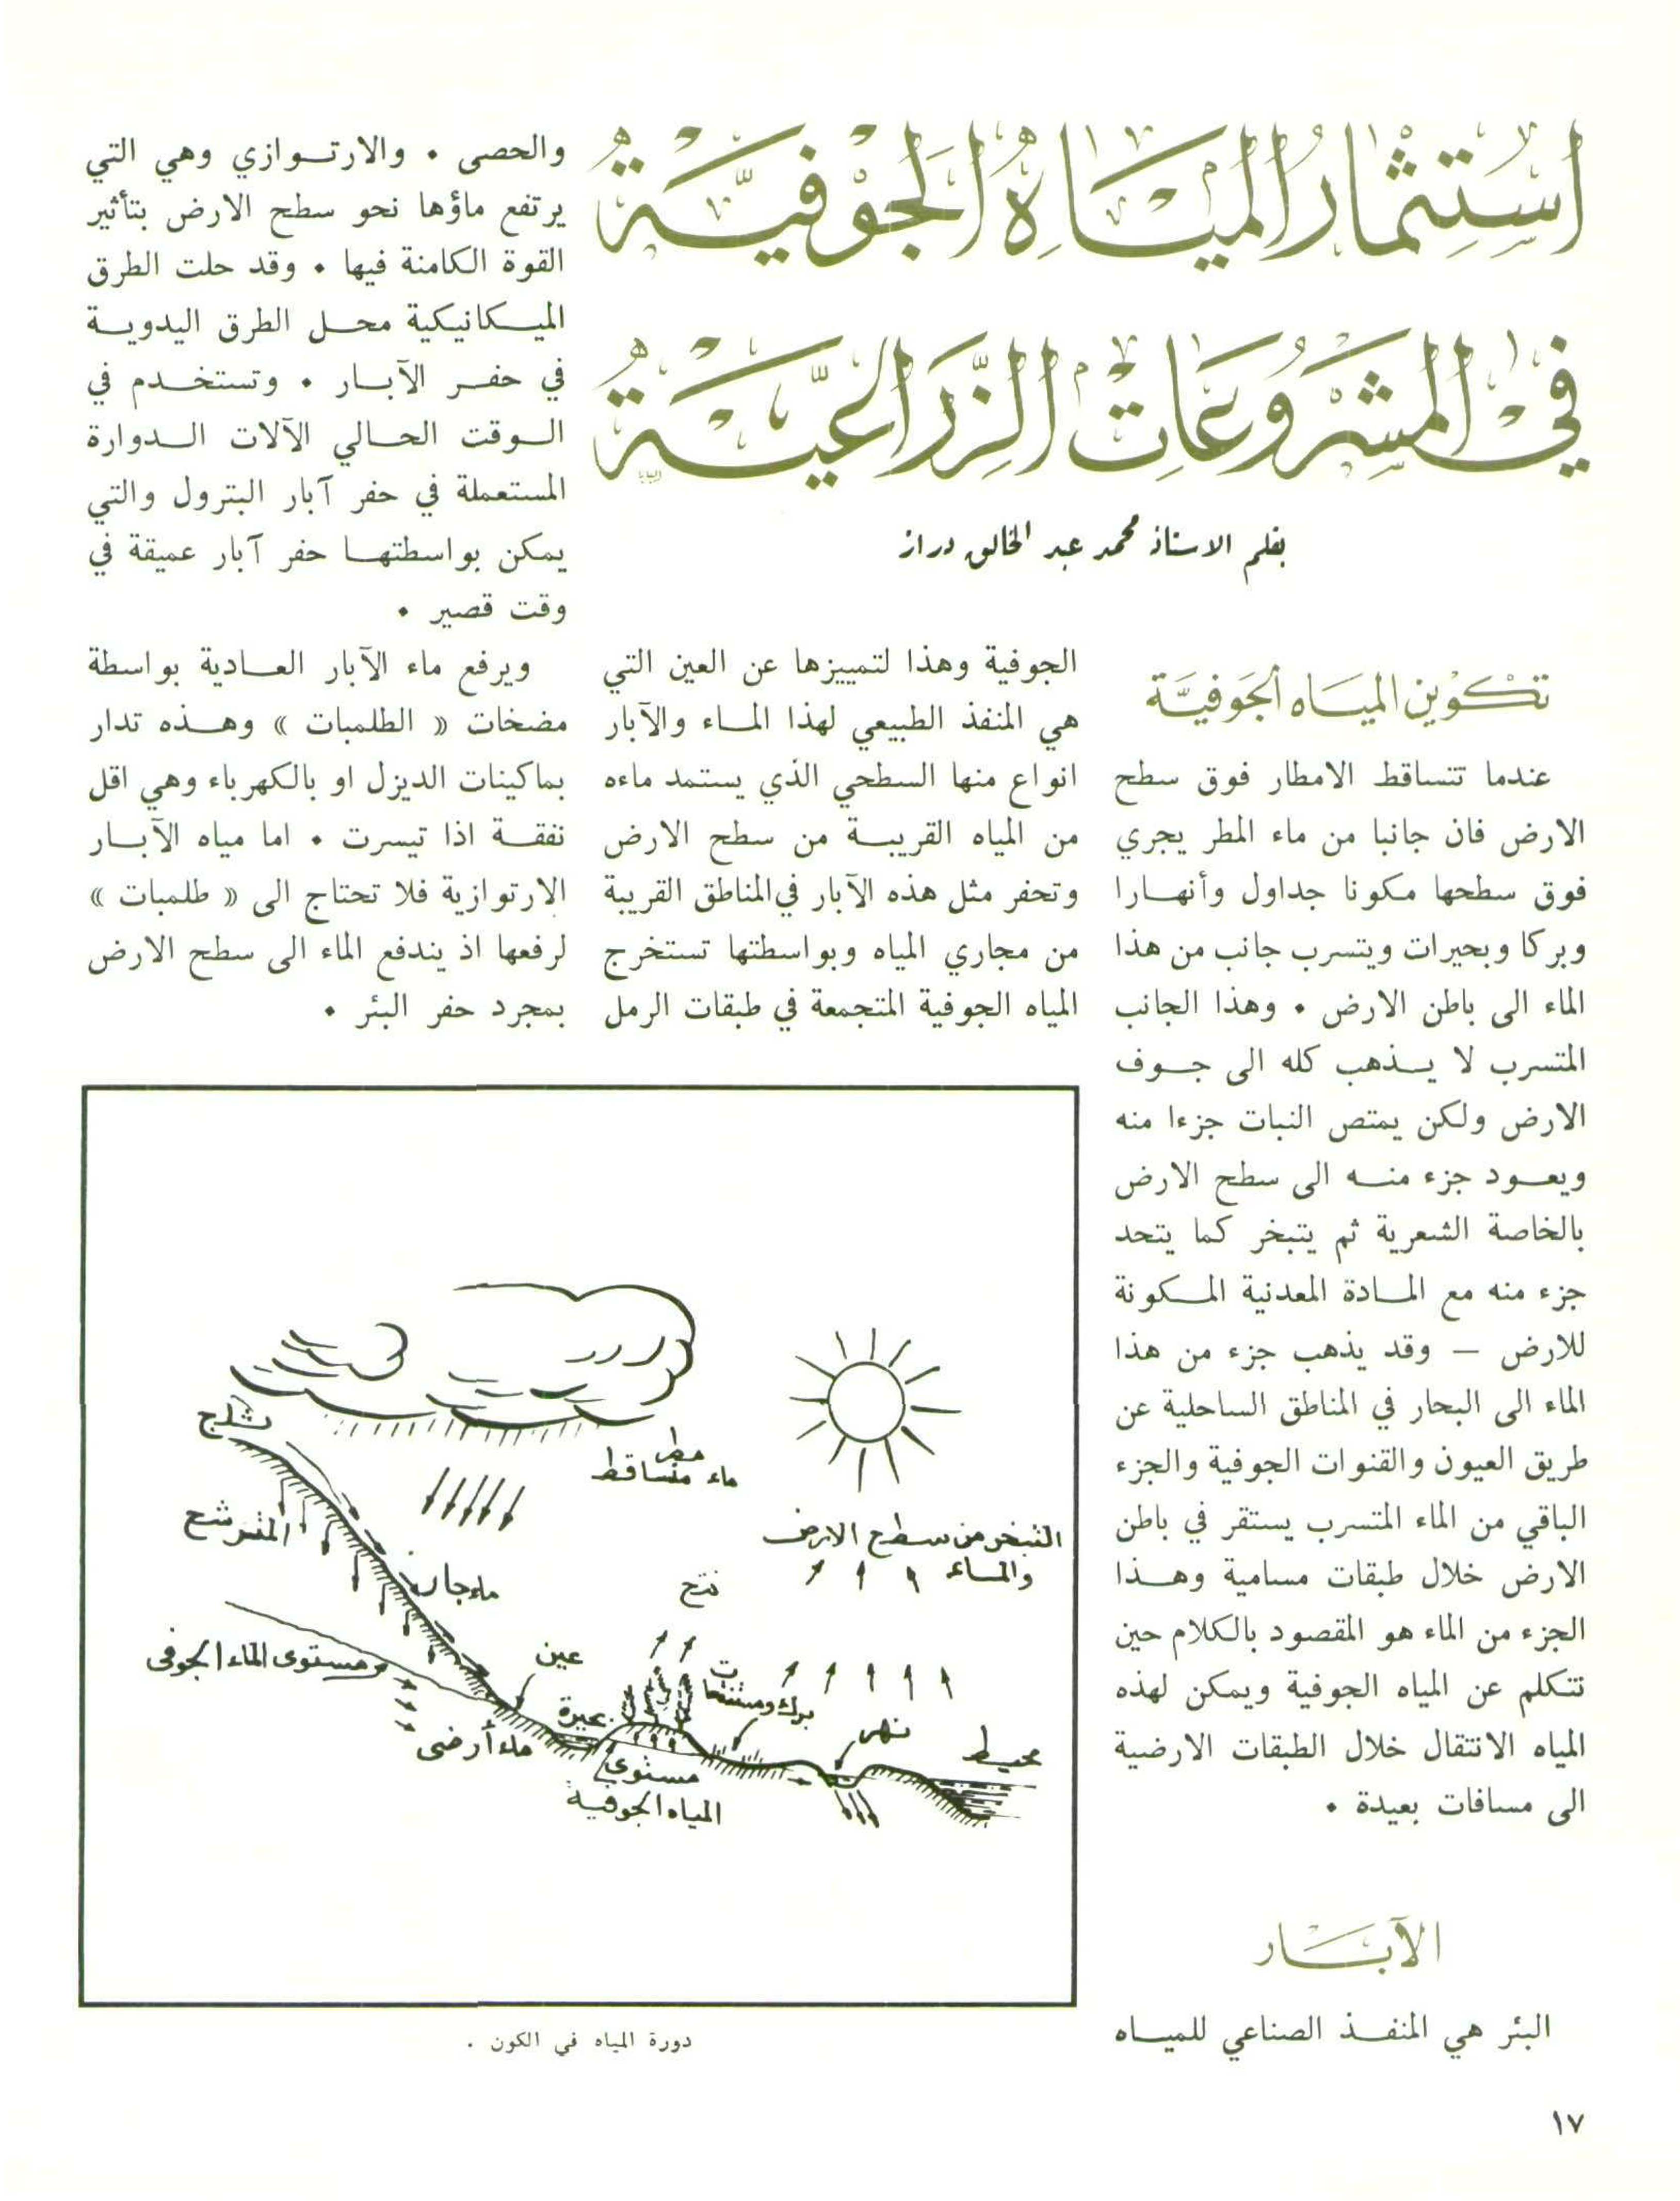 استثمار المياه الجوفية
في المشروعات الزراعية
بقلم الاستاذ محمد عبد الخالق دراز
تكوين المياه الجوفية
عندما تتساقط الامطار فوق سطح
الارض فان جانبا من ماء المطر يجري
فوق سطحها مكونا جداول وأنهارا
وبركا وبحيرات ويتسرب جانب من هذا
الماء الى باطن الارض ٠ وهذا الجانب
المتسرب لا يذهب كله الى جوف
الارض ولكن يمتص النبات جزءا منه
ويعود جزء منه الى سطح الارض
بالخاصة الشعرية ثم يتبخر كما يتحد
جزء منه مع المادة المعدنية المكونة
للارض — وقد يذهب جزء من هذا
الماء الى البحار في المناطق الساحلية عن
طريق العيون والقنوات الجوفية والجزء
الباقي من الماء المتسرب يستقر في باطن
الارض خلال طبقات مسامية وهذا
الجزء من الماء هو المقصود بالكلام حين
نتكلم عن المياه الجوفية ويمكن لهذه
المياه الانتقال خلال الطبقات الارضية
الى مسافات بعيدة ٠
الآبار
البئر هي المنفذ الصناعي للمياه
الجوفية وهذا لتمييزها عن العين التي
هي المنفذ الطبيعي لهذا الماء والآبار
انواع منها السطحي الذي يستمد ماءه
من المياه القريبة من سطح الارض
وتحفر مثل هذه الآبار في المناطق القريبة
من مجاري المياه وبواسطتها تستخرج
المياه الجوفية المتجمعة في طبقات الرمل
والحصى ٠ والارتوازي وهي التي
يرتفع ماؤها نحو سطح الارض بتأثير
القوة الكامنة فيها ٠ وقد حلت الطرق
الميكانيكية محل الطرق اليدوية
في حفر الآبار ٠ وتستخدم في
الوقت الحالي الآلات الدوارة
المستعملة في حفر آبار البترول والتي
يمكن بواسطتها حفر آبار عميقة في
وقت قصير ٠
ويرفع ماء الآبار العادية بواسطة
مضخات « الطلمبات » وهذه تدار
بماكينات الديزل او بالكهرباء وهي اقل
نفقة اذا تيسرت ٠ اما مياه الآبار
الارتوازية فلا تحتاج الى « طلمبات »
لرفعها اذ يندفع الماء الى سطح الارض
بمجرد حفر البئر ٠
ثلج
مطر
ماء متساقط
المترشح
التبخر من سطح الارض
والماء
ماء جار
نتح
مستوى الماء الجوفى
عين
برك ومستنقعات
بحيرة
نهر
محيط
ماء أرضى
مستوى
المياه الجوفية
دورة المياه في الكون .
١٧